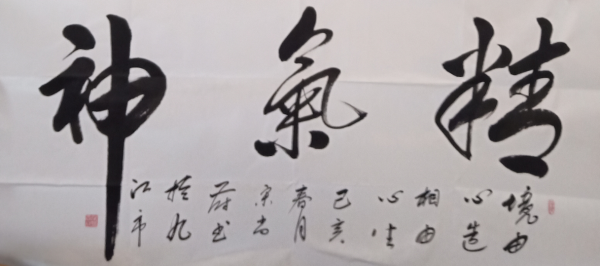 精氣神
境由
心造
相由
心生
己亥
春月
宋书
蔚书
於九
江市